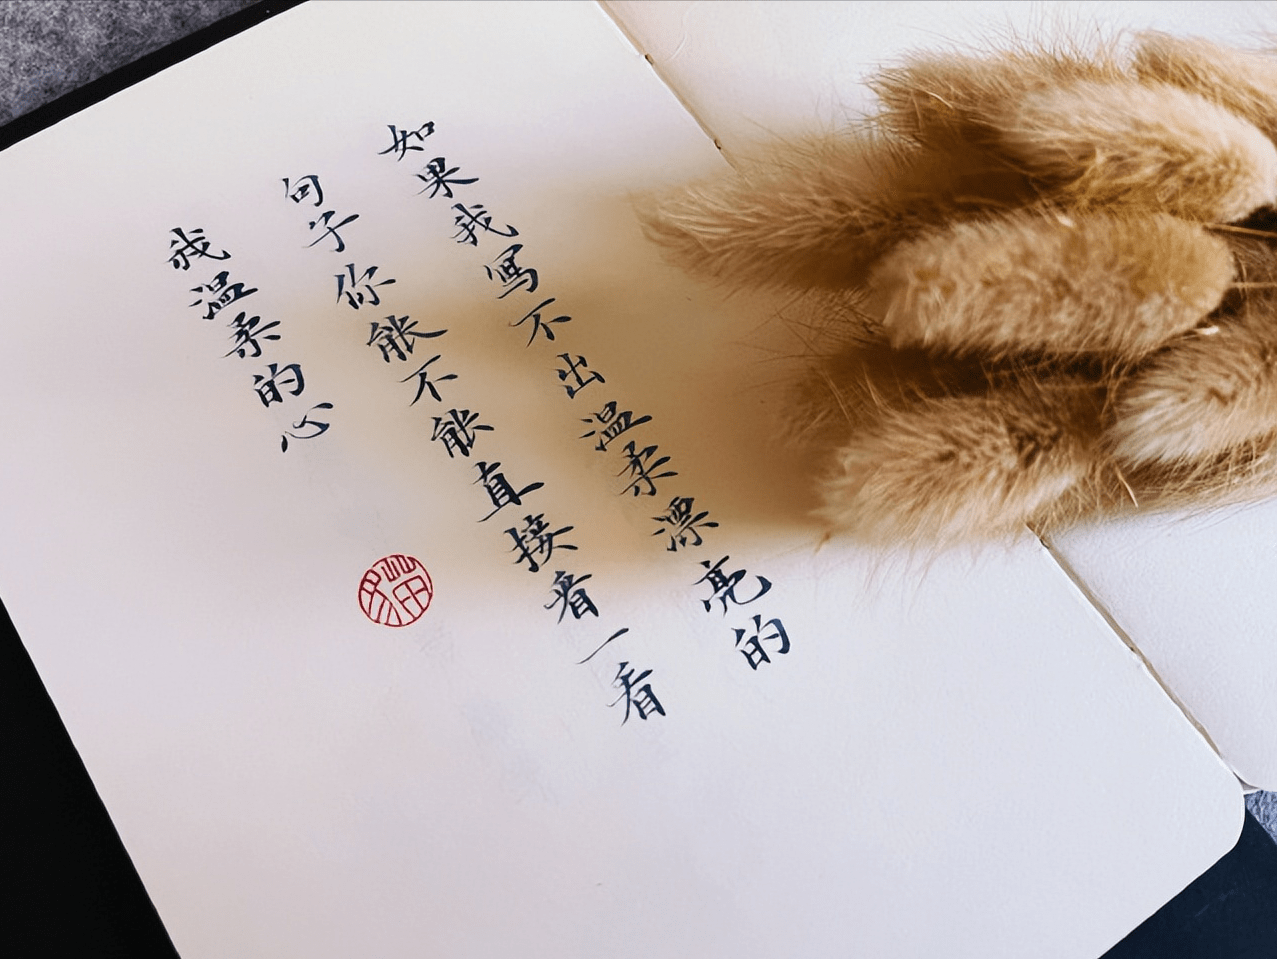 如果我写不出温柔漂亮的
句子你能不能直接看一看
我温柔的心
猫